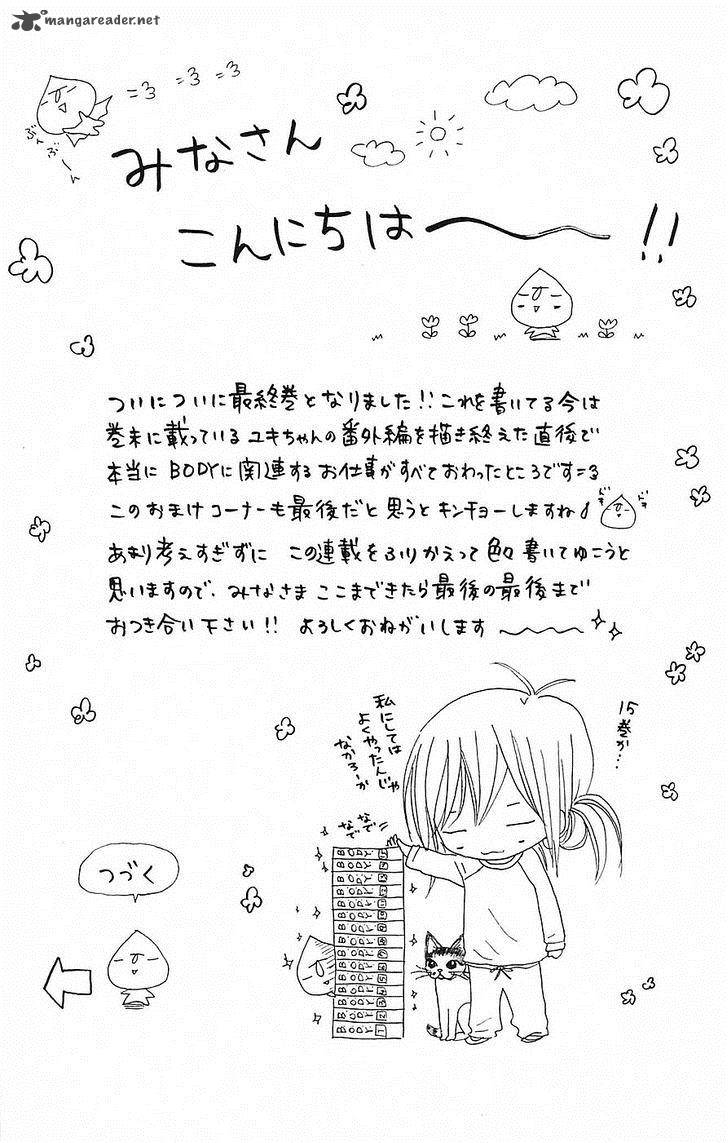 mangareader.net
=3 =3 =3
ぶんぶーん
みなさん
こんにちは〜!!
ついについに最終巻となりました!!これを書いてる今は
巻末に載っているユキちゃんの番外編を描き終えた直後で
本当にBODYに関連するお仕事がすべておわったところです=3
このおまけコーナーも最後だと思うとキンチョーしますね♪
ドキ ドキ
あまり考えすぎずに この連載をふりかえって色々書いてゆこうと
思いますので、みなさまここまできたら最後の最後まで
おつき合い下さい!! よろしくおねがいします〜
15巻か…
私にしては
よくやったんじゃ
なかろーか
なで
なで
BODY
BODY
BODY
BODY
BODY
BODY
BODY
BODY
BODY
BODY
BODY
BODY
BODY
BODY 2
BODY 1
つづく